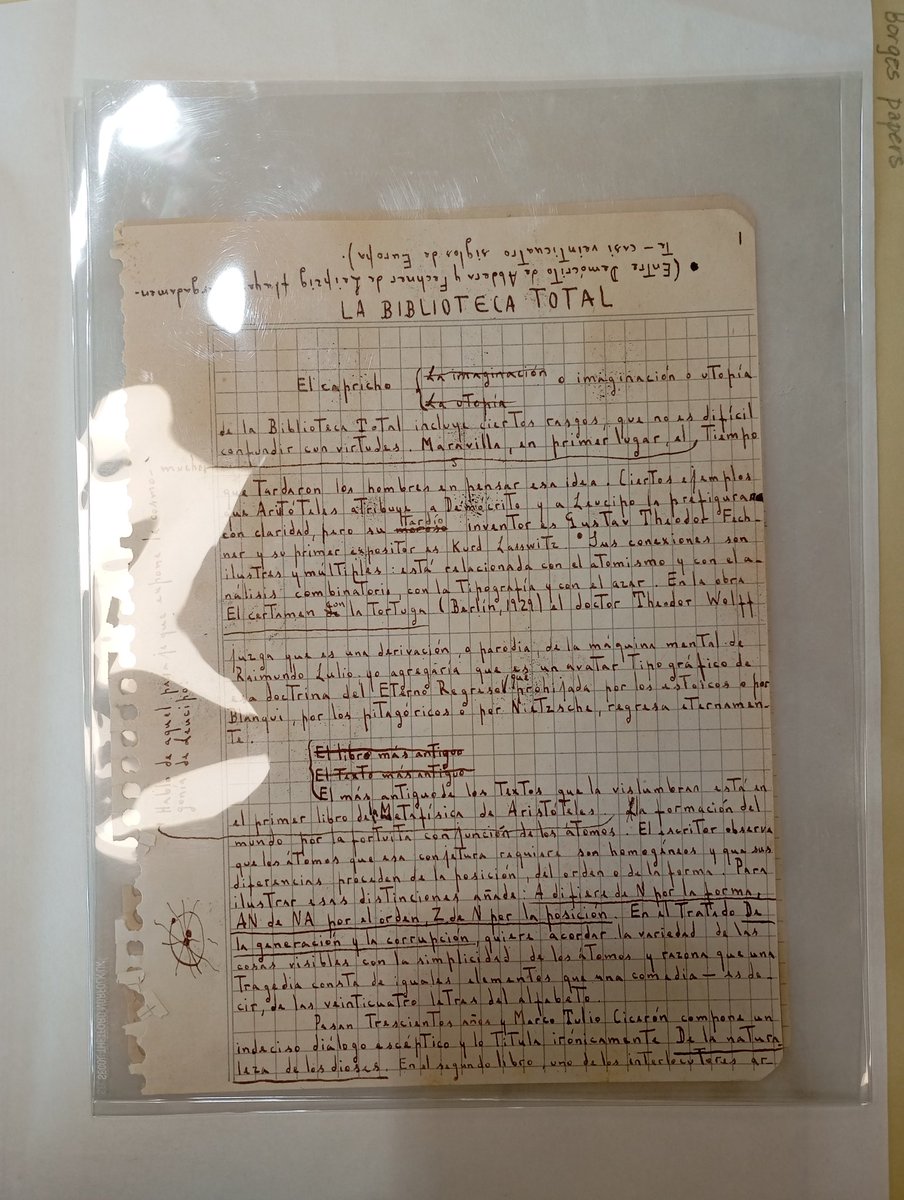 Borges papers
1
(Entre Demócrito de Abdera y Fechner de Leipzig fluyen cargadamen-
te — casi veinticuatro siglos de Europa).
LA BIBLIOTECA TOTAL
El capricho La imaginación o imaginación o utopía
La utopía
de la Biblioteca Total incluye ciertos rasgos, que no es difícil
confundir con virtudes. Maravilla, en primer lugar, el mucho tiempo
que tardaron los hombres en pensar esa idea. Ciertos ejemplos
que Aristóteles atribuye a Demócrito y a Leucipo la prefiguran
con claridad, pero su tardío inventor es Gustav Theodor Fech-
ner y su primer expositor es Kurd Lasswitz. Sus conexiones son
ilustres y múltiples: está relacionada con el atomismo y con el a-
nálisis combinatorio, con la tipografía y con el azar. En la obra
El certamen con la tortuga (Berlín, 1929) el doctor Theodor Wolff
juzga que es una derivación, o parodia, de la máquina mental de
Raimundo Lulio. yo agregaría que es un avatar tipográfico de
la doctrina del Eterno Regreso que prohijada por los estoicos o por
Blanqui, por los pitagóricos o por Nietzsche, regresa eternamen-
te.
El libro más antiguo
El texto más antiguo
El más antiguo de los textos que la vislumbran está en
el primer libro de la Metafísica de Aristóteles. La formación del
mundo por la fortuita conjunción de los átomos. El escritor observa
que los átomos que esa conjetura requiere son homogéneos y que sus
diferencias proceden de la posición, del orden o de la forma. Para
ilustrar esas distinciones añade: A difiere de N por la forma,
AN de NA por el orden, Z de N por la posición. En el tratado De
la generación y la corrupción, quiere acordar la variedad de las
cosas visibles con la simplicidad de los átomos y razona que una
tragedia consta de iguales elementos que una comedia — es de-
cir, de las veinticuatro letras del alfabeto.
Pasan trescientos años y Marco Tulio Cicerón compone un
indeciso diálogo escéptico y lo titula irónicamente De la natura-
leza de los dioses. En el segundo libro, uno de los interlocutores ar-
Hablo de aquel pasaje que expone la cosmo-
gonía de Leucipo